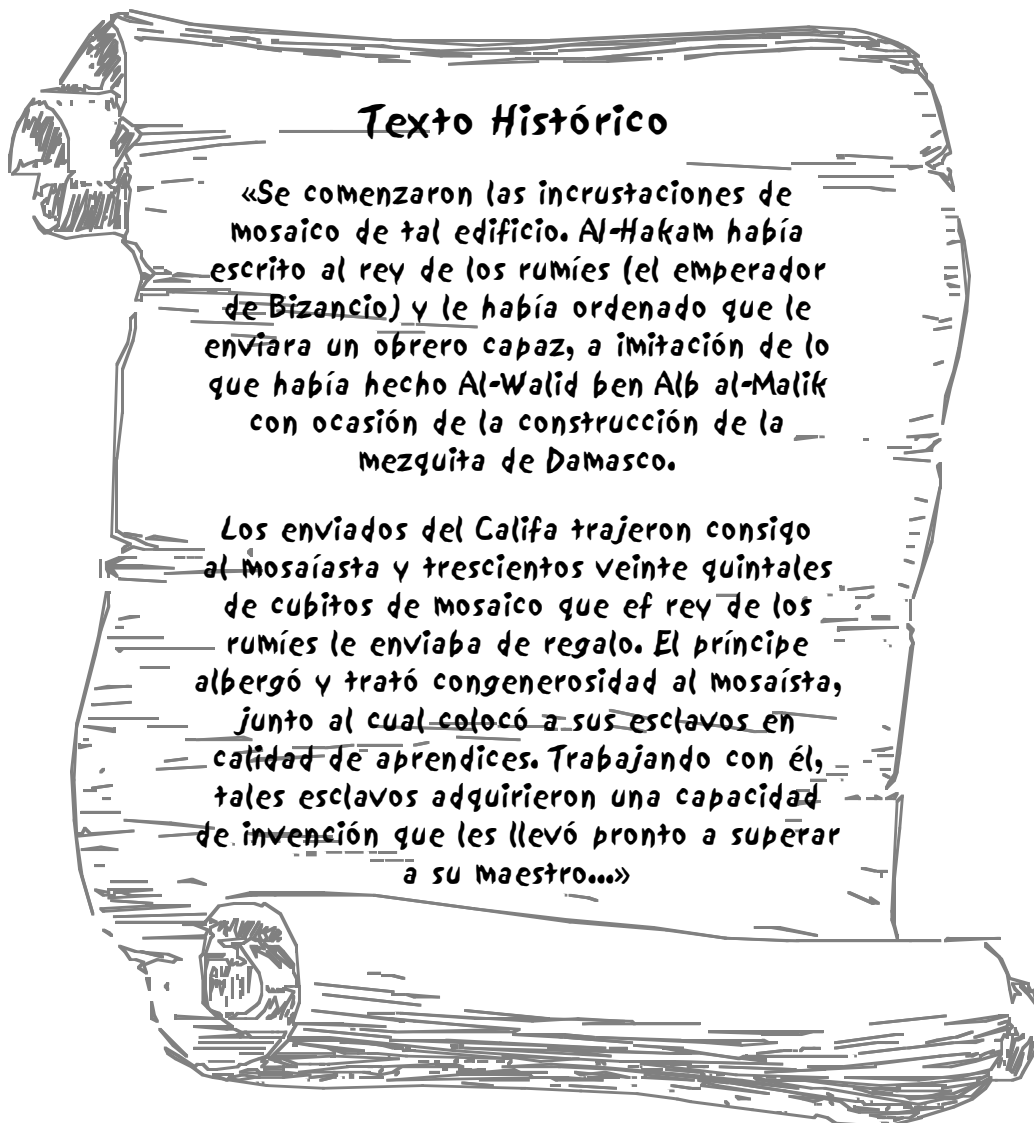 Texto Histórico
«Se comenzaron las incrustaciones de
mosaico de tal edificio. Al-Hakam había
escrito al rey de los rumíes (el emperador
de Bizancio) y le había ordenado que le
enviara un obrero capaz, a imitación de lo
que había hecho Al-Walid ben Alb al-Malik
con ocasión de la construcción de la
mezquita de Damasco.
Los enviados del Califa trajeron consigo
al mosaíasta y trescientos veinte quintales
de cubitos de mosaico que ef rey de los
rumíes le enviaba de regalo. El príncipe
albergó y trató congenerosidad al mosaísta,
junto al cual colocó a sus esclavos en
calidad de aprendices. Trabajando con él,
tales esclavos adquirieron una capacidad
de invención que les llevó pronto a superar
a su maestro...»